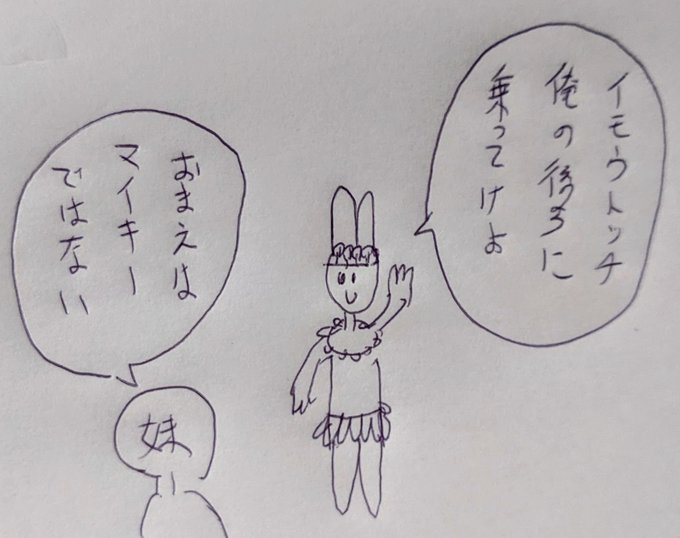 イモウトッチ
俺の後ろに
乗ってけよ
おまえは
マイキー
ではない
妹